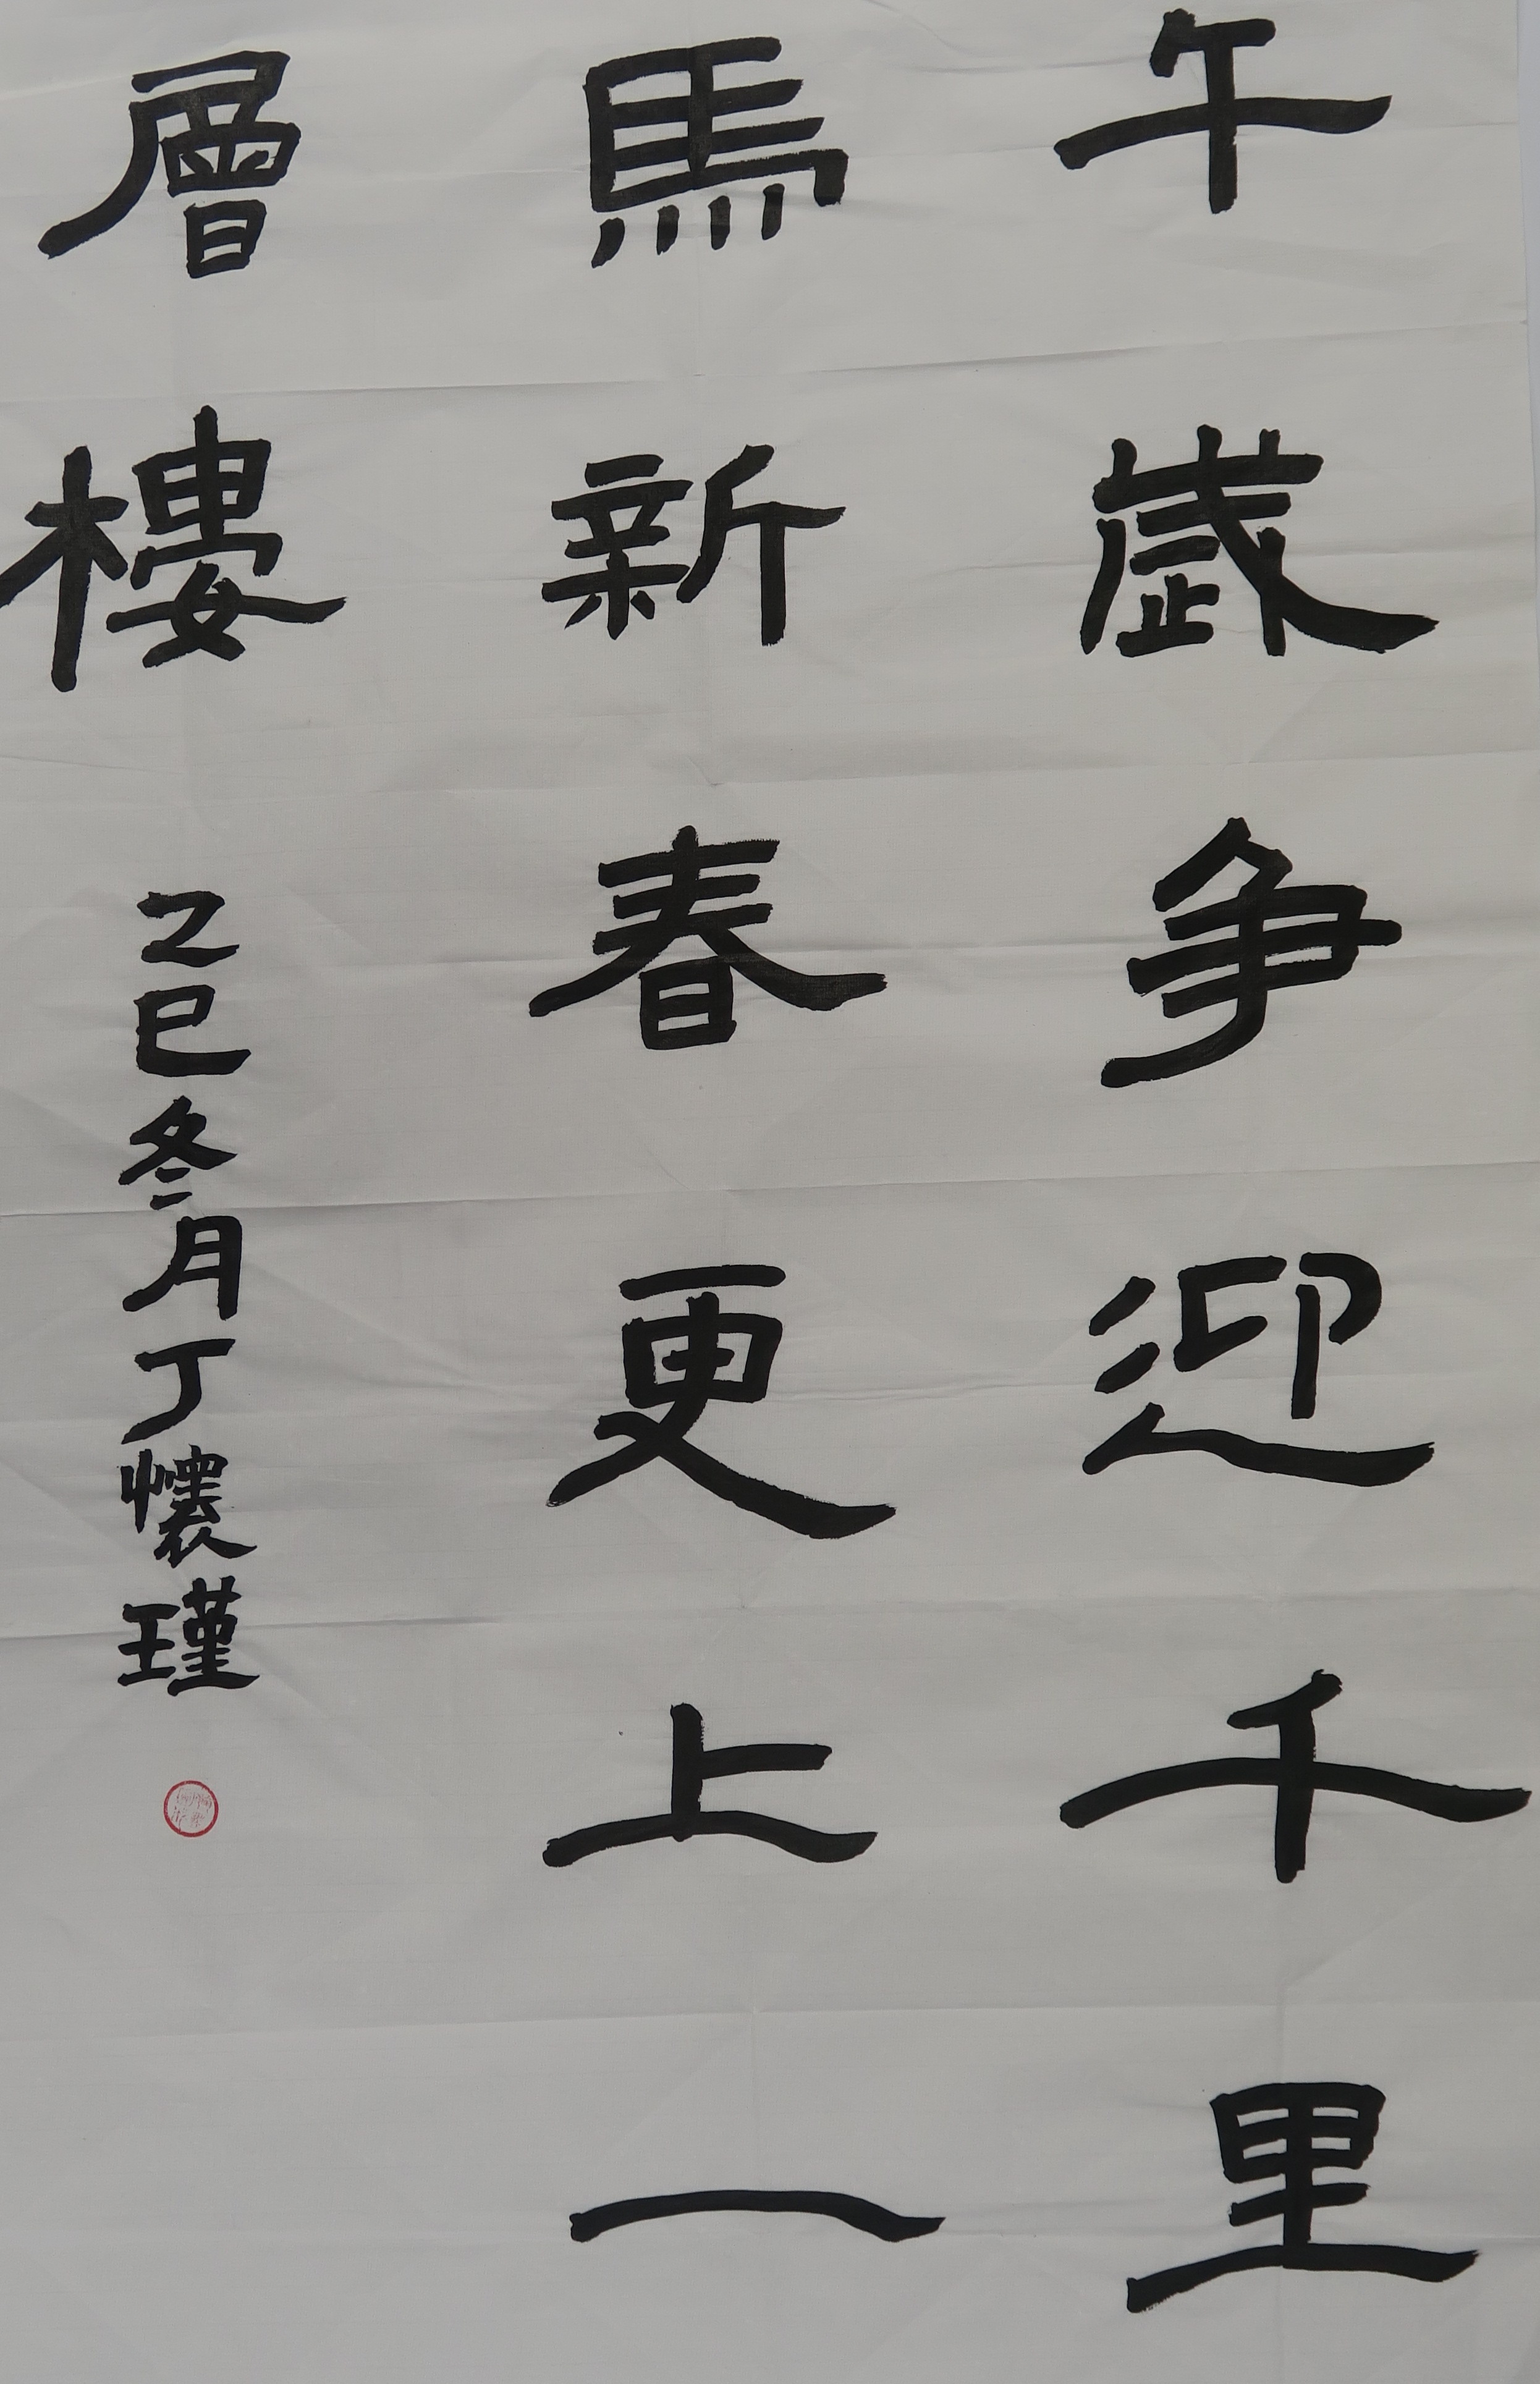 午歲争迎千里
馬新春更上一
層樓
乙巳冬月丁懷瑾